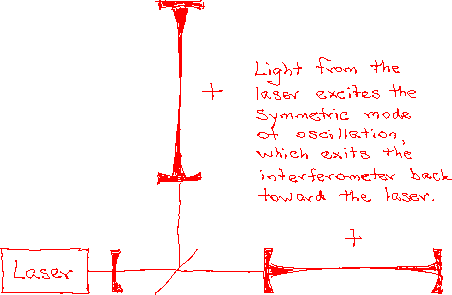 +
Light from the
laser excites the
symmetric mode
of oscillation,
which exits the
interferometer back
toward the laser.
+
Laser